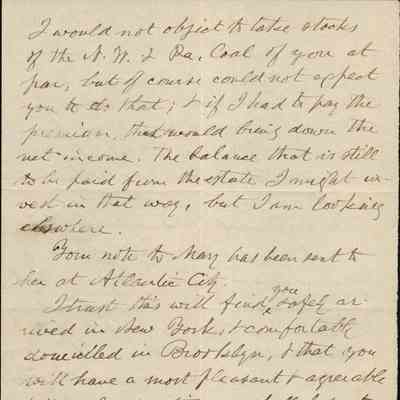 I would not object to take stocks
of the N. W. & Pa. Coal of you at
par, but of course could not expect
you to do that; & if I had to pay the
premium, that would bring down the
net income. The balance that is still
to be paid from the estate I might in-
vest in that way, but I am looking
elsewhere.
Your note to Mary has been sent to
her at Atlantic City.
I trust this will find you safely ar-
rived in New York, & comfortably
domiciled in Brooklyn, & that you
will have a most pleasant & agreeable